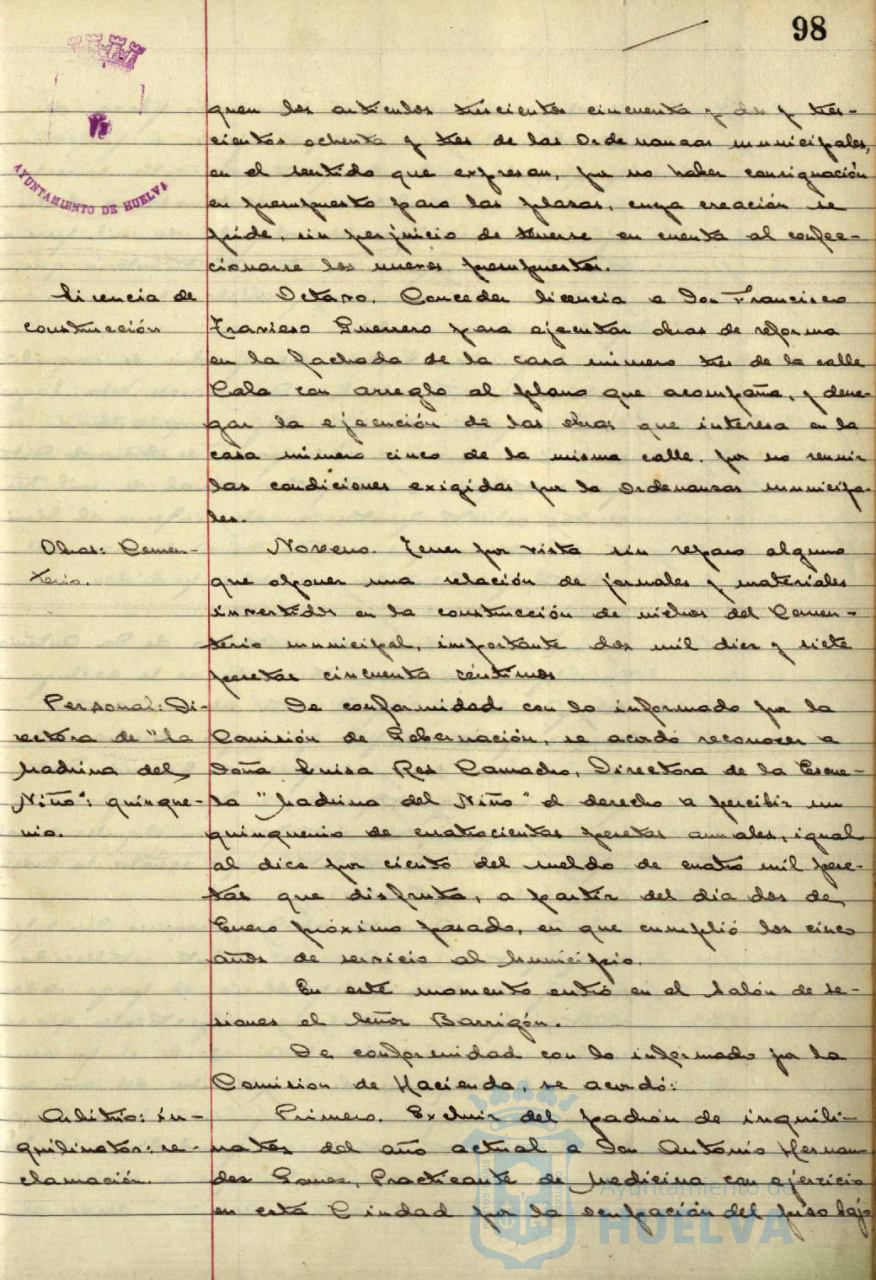 98
AYUNTAMIENTO DE HUELVA
quen los artículos trescientos cincuenta y dos y tres-
cientos ochenta y tres de las Ordenanzas municipales,
en el sentido que expresan, por no haber consignación
en presupuesto para las plazas, cuya creación se
pide, sin perjuicio de tenerse en cuenta al confec-
cionarse los nuevos presupuestos.
Licencia de
construcción
Octavo. Conceder licencia a Don Francisco
Travieso Guerrero para ejecutar obras de reforma
en la fachada de la casa número tres de la calle
Cala con arreglo al plano que acompaña, y dene-
gar la ejecución de las obras que interesa en la
casa número cinco de la misma calle, por no reunir
las condiciones exigidas por la Ordenanzas municipa-
les.
Obras: Cemen-
terio.
Noveno. Tener por vista sin reparo alguno
que oponer una relación de jornales y materiales
invertidos en la construcción de nichos del Cemen-
terio municipal, importante dos mil diez y siete
pesetas cincuenta céntimos
Personal: Di-
rectora de "La
Madrina del
Niño": quinque-
nio.
De conformidad con lo informado por la
Comisión de Gobernación, se acordó reconocer a
Doña Luisa Rey Camacho, Directora de la Escue-
la "Madrina del Niño" el derecho a percibir un
quinquenio de cuatrocientas pesetas anuales, igual
al diez por ciento del sueldo de cuatro mil pese-
tas que disfruta, a partir del día dos de
Enero próximo pasado, en que cumplió los cinco
años de servicio al Municipio.
En este momento entró en el Salón de se-
siones el Señor Barrigón.
De conformidad con lo informado por la
Comision de Hacienda, se acordó:
Arbitrio: in-
quilinatos: re-
clamación.
Primero. Excluir del padrón de inquili-
natos del año actual a Don Antonio Hernan-
dez Gomez, Practicante de Medicina con ejercicio
en esta Ciudad por la ocupación del piso bajo
Ayuntamiento de
HUELVA